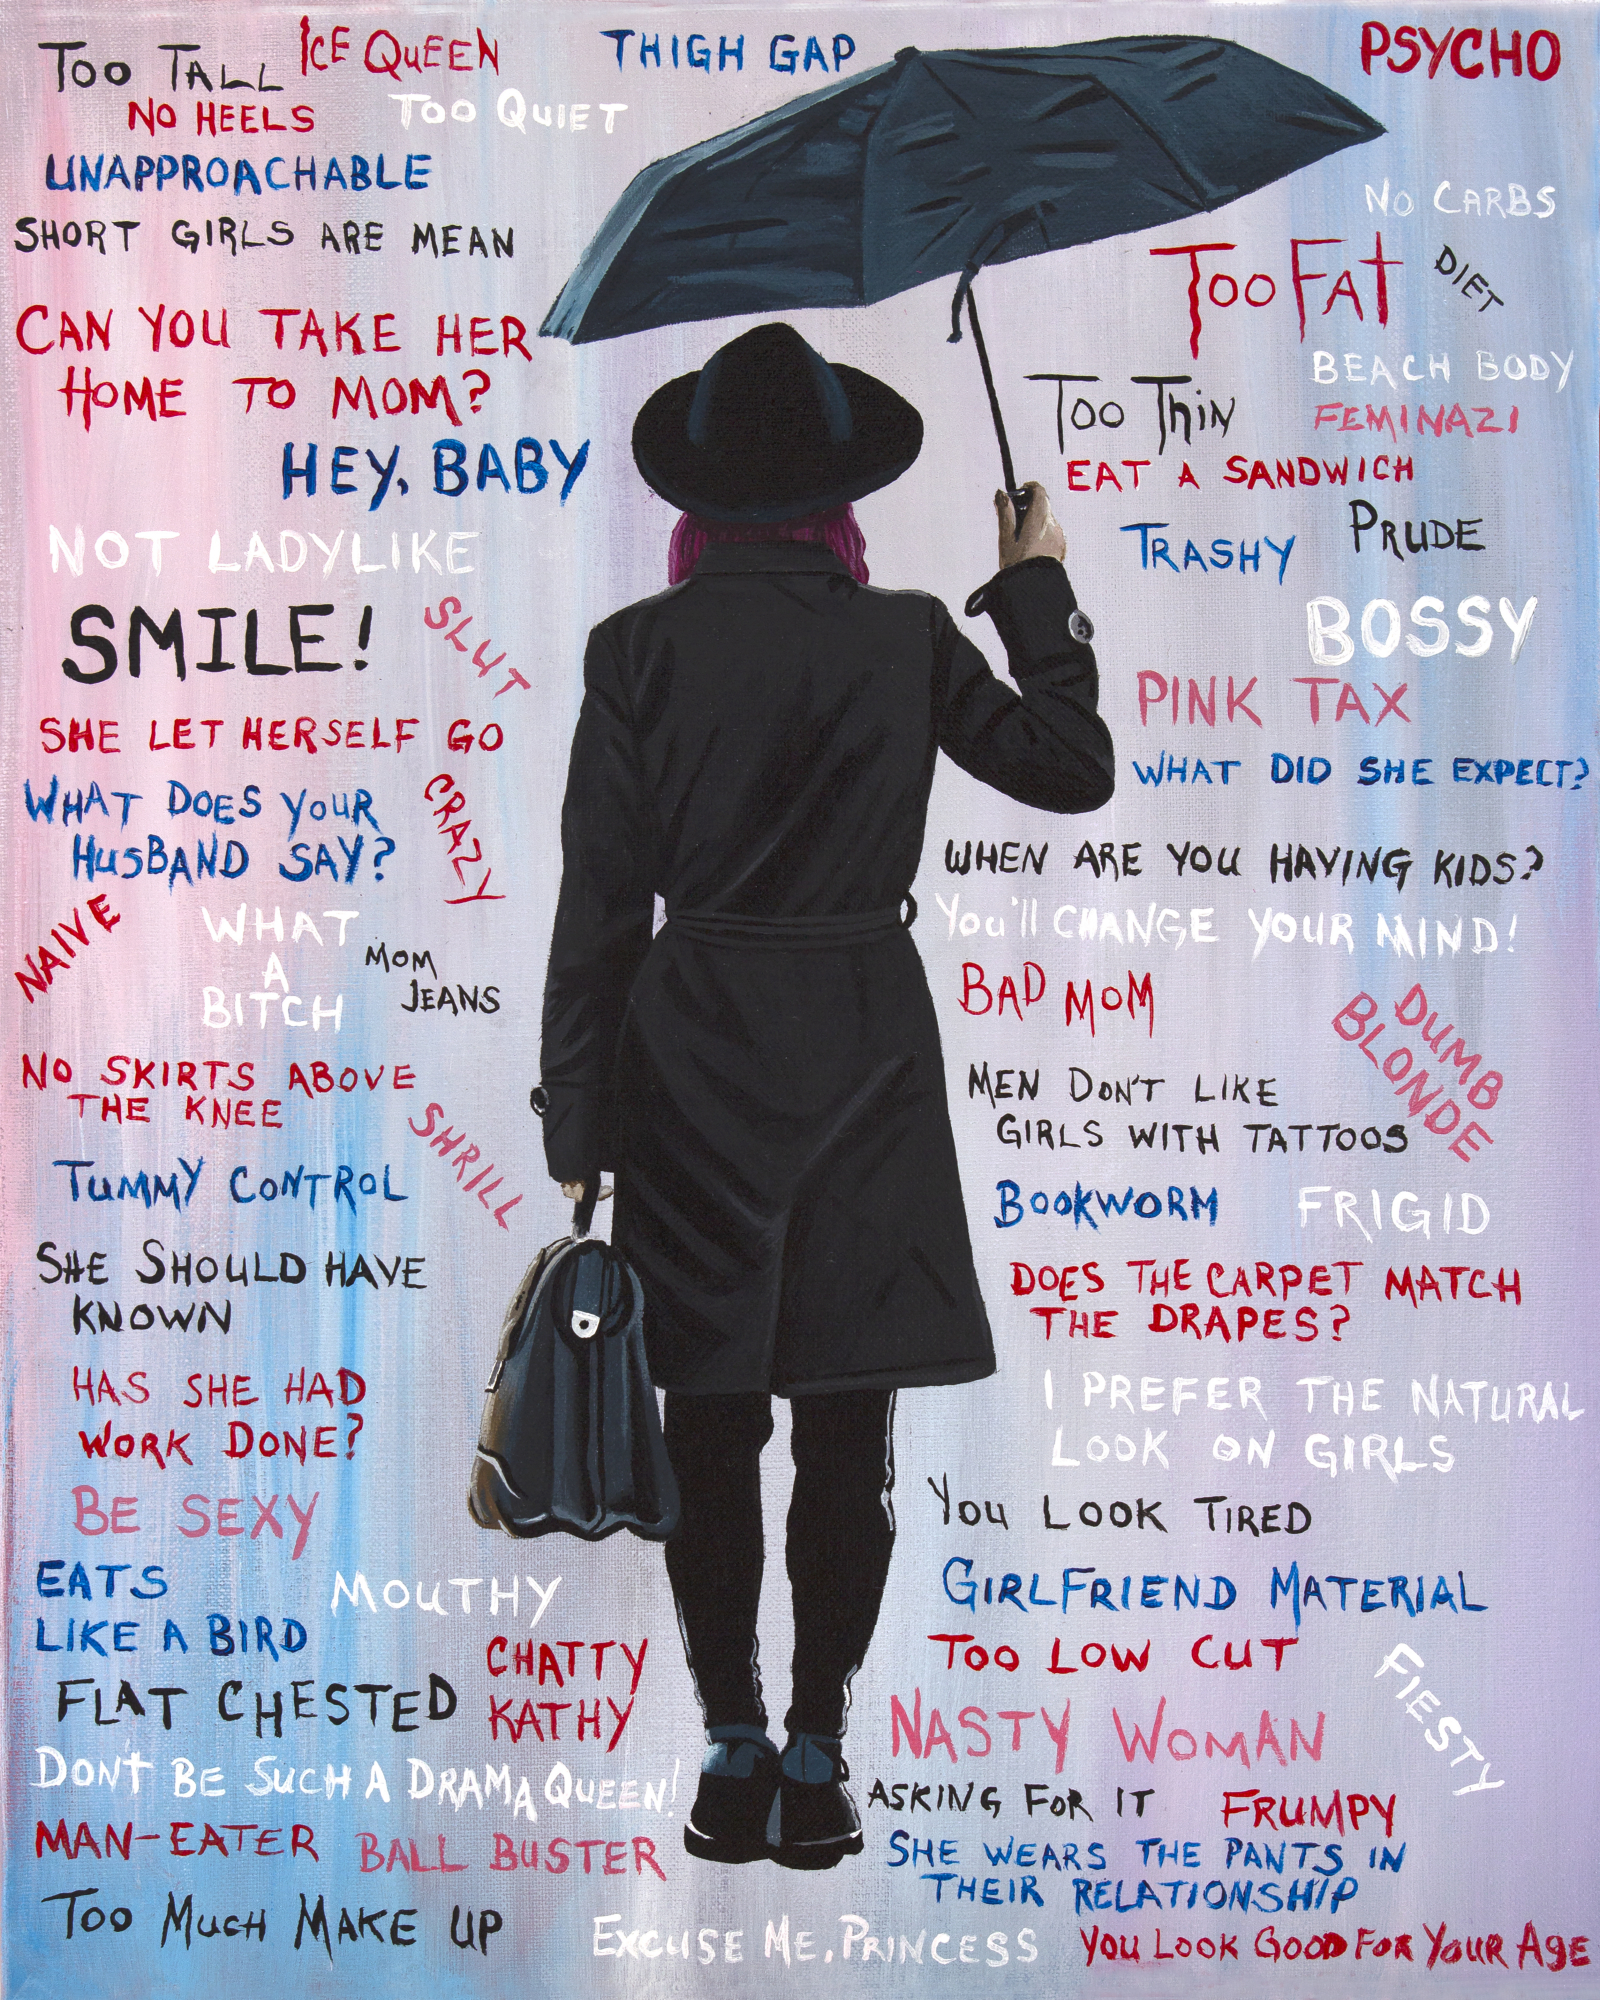 TOO TALL
ICE QUEEN
THIGH GAP
PSYCHO
NO HEELS
TOO QUIET
UNAPPROACHABLE
SHORT GIRLS ARE MEAN
CAN YOU TAKE HER
HOME TO MOM?
HEY, BABY
NOT LADYLIKE
SMILE!
SLUT
SHE LET HERSELF GO
WHAT DOES YOUR
HUSBAND SAY?
CRAZY
NAIVE
WHAT
A
BITCH
MOM
JEANS
NO SKIRTS ABOVE
THE KNEE
SHRILL
TUMMY CONTROL
SHE SHOULD HAVE
KNOWN
HAS SHE HAD
WORK DONE?
BE SEXY
EATS
LIKE A BIRD
MOUTHY
CHATTY
KATHY
FLAT CHESTED
DON'T BE SUCH A DRAMA QUEEN!
MAN-EATER
BALL BUSTER
TOO MUCH MAKE UP
NO CARBS
TOO FAT
DIET
BEACH BODY
TOO THIN
FEMINAZI
EAT A SANDWICH
TRASHY
PRUDE
BOSSY
PINK TAX
WHAT DID SHE EXPECT?
WHEN ARE YOU HAVING KIDS?
You'll CHANGE YOUR MIND!
BAD MOM
DUMB
BLONDE
MEN DON'T LIKE
GIRLS WITH TATTOOS
BOOKWORM
FRIGID
DOES THE CARPET MATCH
THE DRAPES?
I PREFER THE NATURAL
LOOK ON GIRLS
YOU LOOK TIRED
GIRLFRIEND MATERIAL
TOO LOW CUT
FIESTY
NASTY WOMAN
ASKING FOR IT
FRUMPY
SHE WEARS THE PANTS IN
THEIR RELATIONSHIP
EXCUSE ME, PRINCESS
YOU LOOK GOOD FOR YOUR AGE